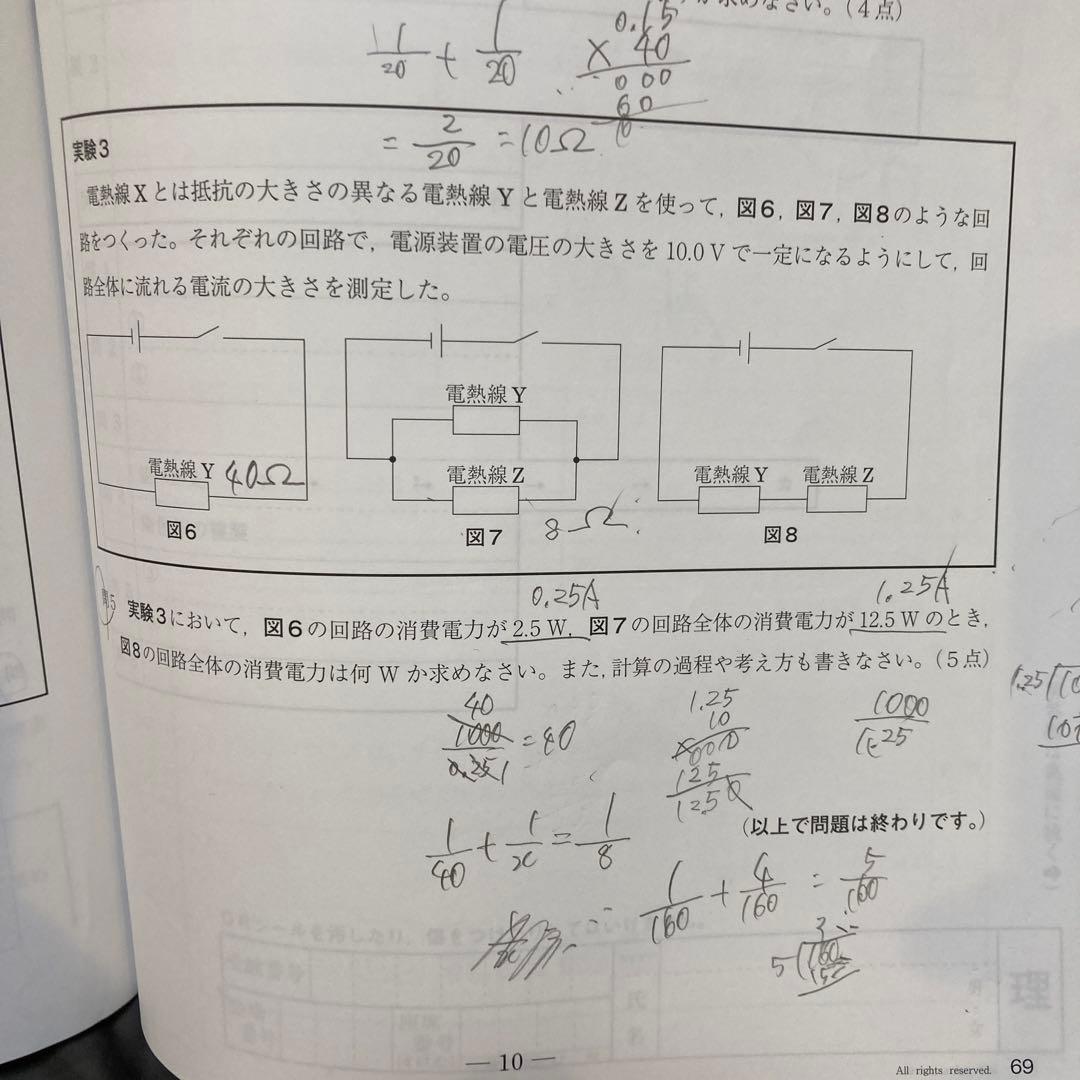 求めなさい。(4点)
1/20 + 1/20
0.15
× 40
000
60
= 2/20 = 10Ω
実験3
電熱線Xとは抵抗の大きさの異なる電熱線Yと電熱線Zを使って, 図6, 図7, 図8のような回
路をつくった。それぞれの回路で, 電源装置の電圧の大きさを10.0Vで一定になるようにして, 回
路全体に流れる電流の大きさを測定した。
電熱線Y 40Ω
図6
電熱線Y
電熱線Z
8Ω
図7
電熱線Y 電熱線Z
図8
0.25A 1.25A
問5 実験3において, 図6の回路の消費電力が2.5W, 図7の回路全体の消費電力が12.5Wのとき,
図8の回路全体の消費電力は何Wか求めなさい。また, 計算の過程や考え方も書きなさい。(5点)
40
1000/0.25 = 40
1.25
10
000
125
12.50
1000/1.25
1.25
1/40 + 1/x = 1/8
(以上で問題は終わりです。)
1/160 + 4/160 = 5/160
5 160
— 10 —
All rights reserved. 69